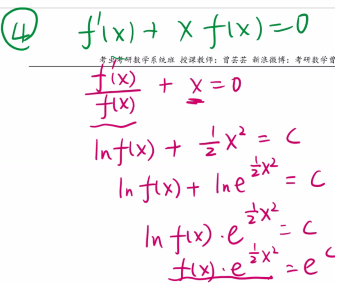 ④ f'(x) + x f(x) = 0
考业考研数学系统班 授课教师：曾芸芸 新浪微博：考研数学曾
f'(x)/f(x) + x = 0
ln f(x) + 1/2 x² = C
ln f(x) + ln e^(1/2 x²) = C
ln f(x) · e^(1/2 x²) = C
f(x) · e^(1/2 x²) = e^C